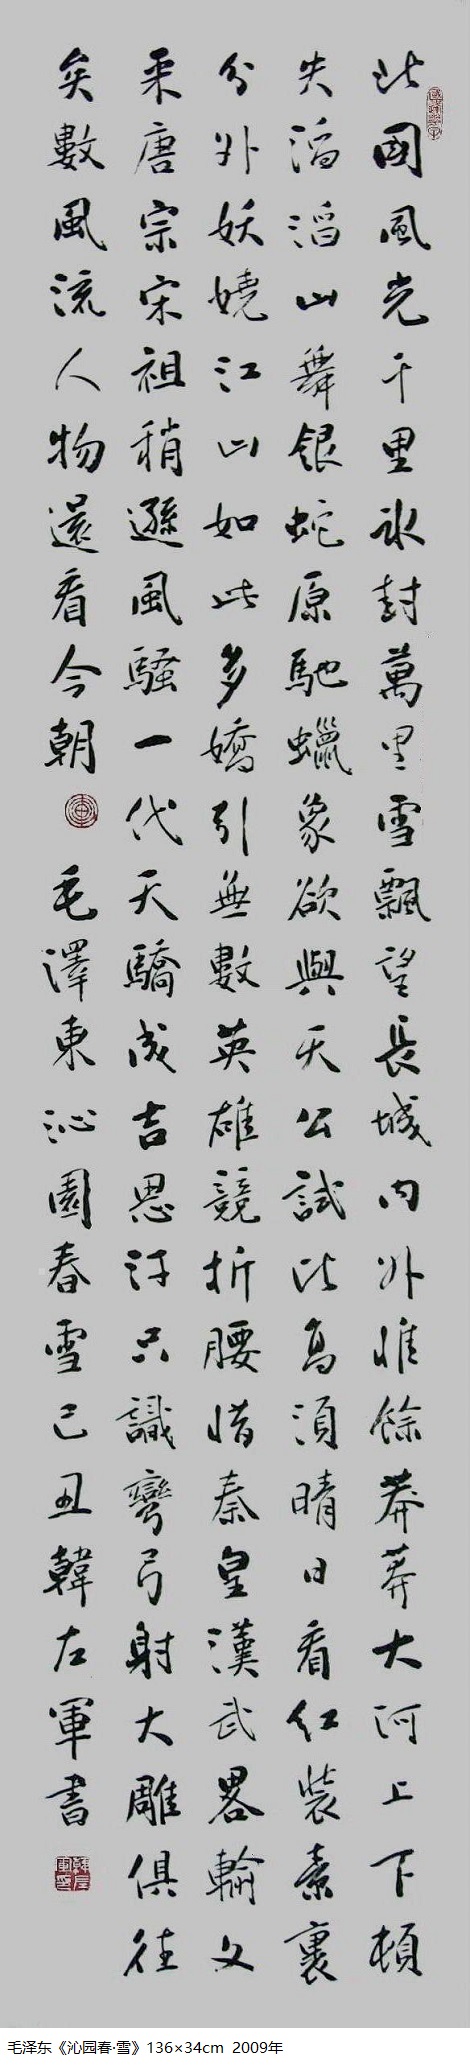 北國風光千里冰封萬里雪飄望長城内外惟餘莽莽大河上下頓
失滔滔山舞銀蛇原馳蠟象欲與天公試比高須晴日看紅裝素裹
分外妖嬈江山如此多嬌引無數英雄競折腰惜秦皇漢武畧輸文
采唐宗宋祖稍遜風騷一代天驕成吉思汗只識彎弓射大雕俱往
矣數風流人物還看今朝 毛澤東沁園春雪己丑韓左軍書
毛泽东《沁园春·雪》136×34cm 2009年